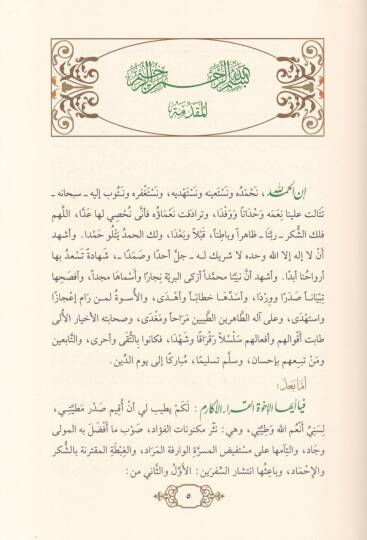 بسم الله الرحمن الرحيم
المقدمة
إن الحمد لله، نَحْمَدُه ونَسْتعينه ونَسْتهديه، ونَسْتغفره ونَتوب إليه ـ سبحانه ـ
تَتَالت علينا نِعَمه وَحْدَاناً وَوَفْدَا، وترادَفت نَعْمَاؤُه فأنَّى نُحْصِي لها عَدَّا، اللَّهم
فلك الشُّكر ـ ربَّنا ـ ظاهراً وباطناً، قَبْلاً وبَعْدَا، ولك الحمدُ يَتْلُو حَمْدا. وأشهد
أنْ لا إله إلا الله وحده لا شريك له ـ جلَّ أحدًا صَمَدَا ـ، شَهادةً تَسْعدُ بها
أرواحُنا أبدَا. وأشهد أنَّ نبيَّنا محمَّداً أزكى البريّة نِجارًا وأسْماها مجداً، وأفصَحِها
تِبْيَاناً صَدَرًا ووِرْدَا، وأسَدِّها خطاباً وأهْدَى، والأسوةُ لمن رَام إعْجازًا
واستهْدَى، وعلى آله الطَّاهرين الطَّيبين مَرَاحاً ومَغْدَى، وصحابته الأخيار الأُلى
طابت أقْوالُهم وأفعالُهم سَلْسَلاً رَقْرَاقًا وشَهْدَا، فكانوا بالتُّقَى وأحرى، والتَّابعين
ومَنْ تبِعهم بإحسان، وسلَّم تسليمًا، مُباركًا إلى يوم الدِّين.
أمّا بَعْدُ:
فيا أيها الإخوة القراء الأكارم: لَكَمْ يطيب لي أنْ أُقِيم صَدْر مَطِيَّتِي،
لِسَنِيِّ أَنْعُم الله وَطِيَّتِي، وهي: نَثْر مكنونات الفؤاد، صَوْب ما أَفْضَلَ به المولى
وجَاد، والتِآمها على مُسْتفيض المسرَّة الوارفة المَرَاد، والغِبْطَةِ المقترنة بالشُّكر
والإِحْماد، وباعِثُها انتشار السِّفرَين: الأوَّلُ والثَّاني من:
٥